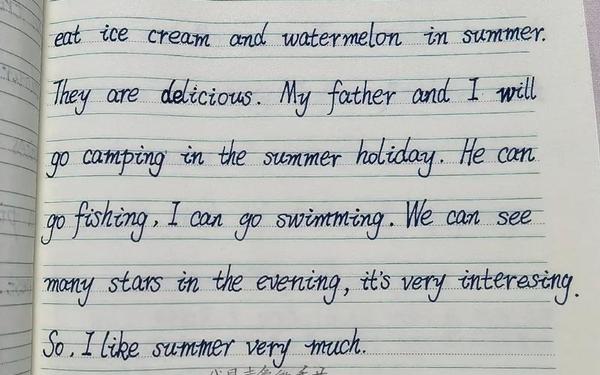 eat ice cream and watermelon in summer.
They are delicious. My father and I will
go camping in the summer holiday. He can
go fishing, I can go swimming. We can see
many stars in the evening, it's very interesing.
So, I like summer very much.